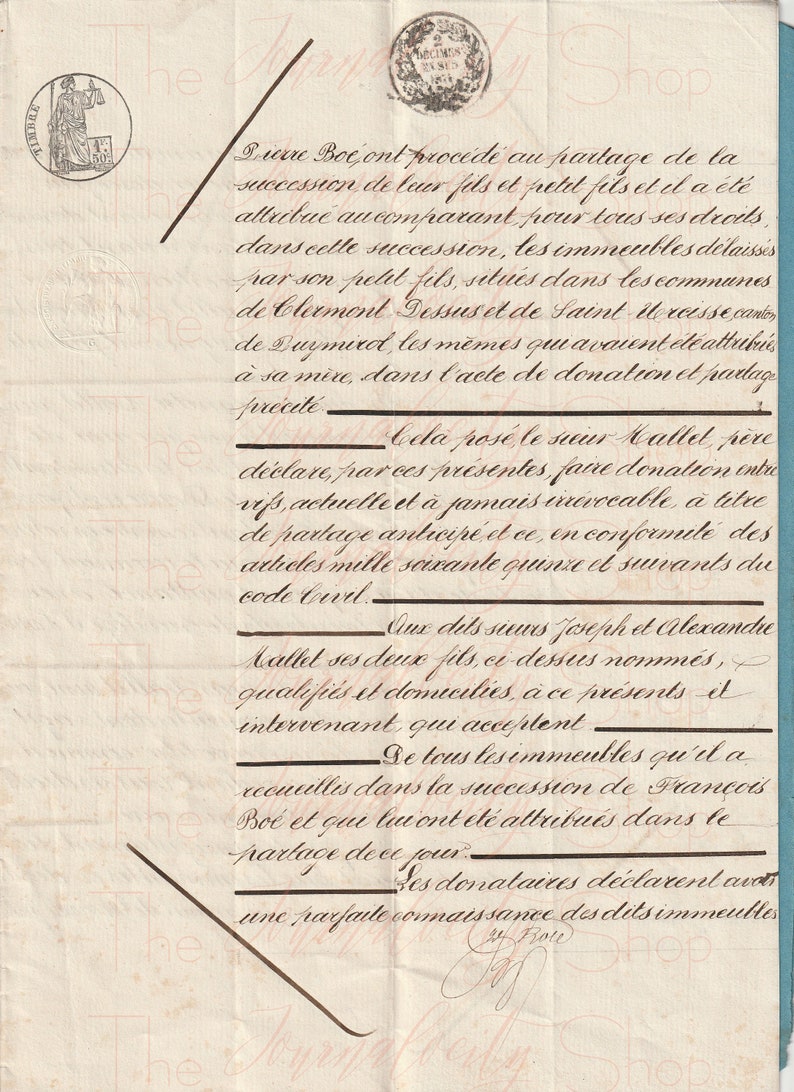 2
DÉCIMES
EN SUS
TIMBRE
1F.
50c.
Pierre Boé, ont procédé au partage de la
succession de leur fils et petit fils et il a été
attribué au comparant, pour tous ses droits,
dans cette succession, les immeubles délaissés
par son petit fils, situés dans les communes
de Clermont Dessus et de Saint Urcisse, canton
de Puymirol, les mêmes qui avaient été attribués
à sa mère, dans l'acte de donation et partage
précité.
Cela posé, le sieur Mallet, père
déclare, par ces présentes, faire donation entre
vifs, actuelle et à jamais irrévocable, à titre
de partage anticipé, et ce, en conformité des
articles mille soixante quinze et suivants du
code Civil.
Aux dits sieurs Joseph et Alexandre
Mallet ses deux fils, ci-dessus nommés,
qualifiés et domiciliés, à ce présents et
intervenant, qui acceptent
De tous les immeubles qu'il a
recueillis dans la succession de François
Boé et qui lui ont été attribués dans le
partage de ce jour.
Les donataires déclarent avoir
une parfaite connaissance des dits immeubles
The Journalocity Shop
The Journalocity Shop
The Journalocity Shop
The Journalocity Shop
The Journalocity Shop